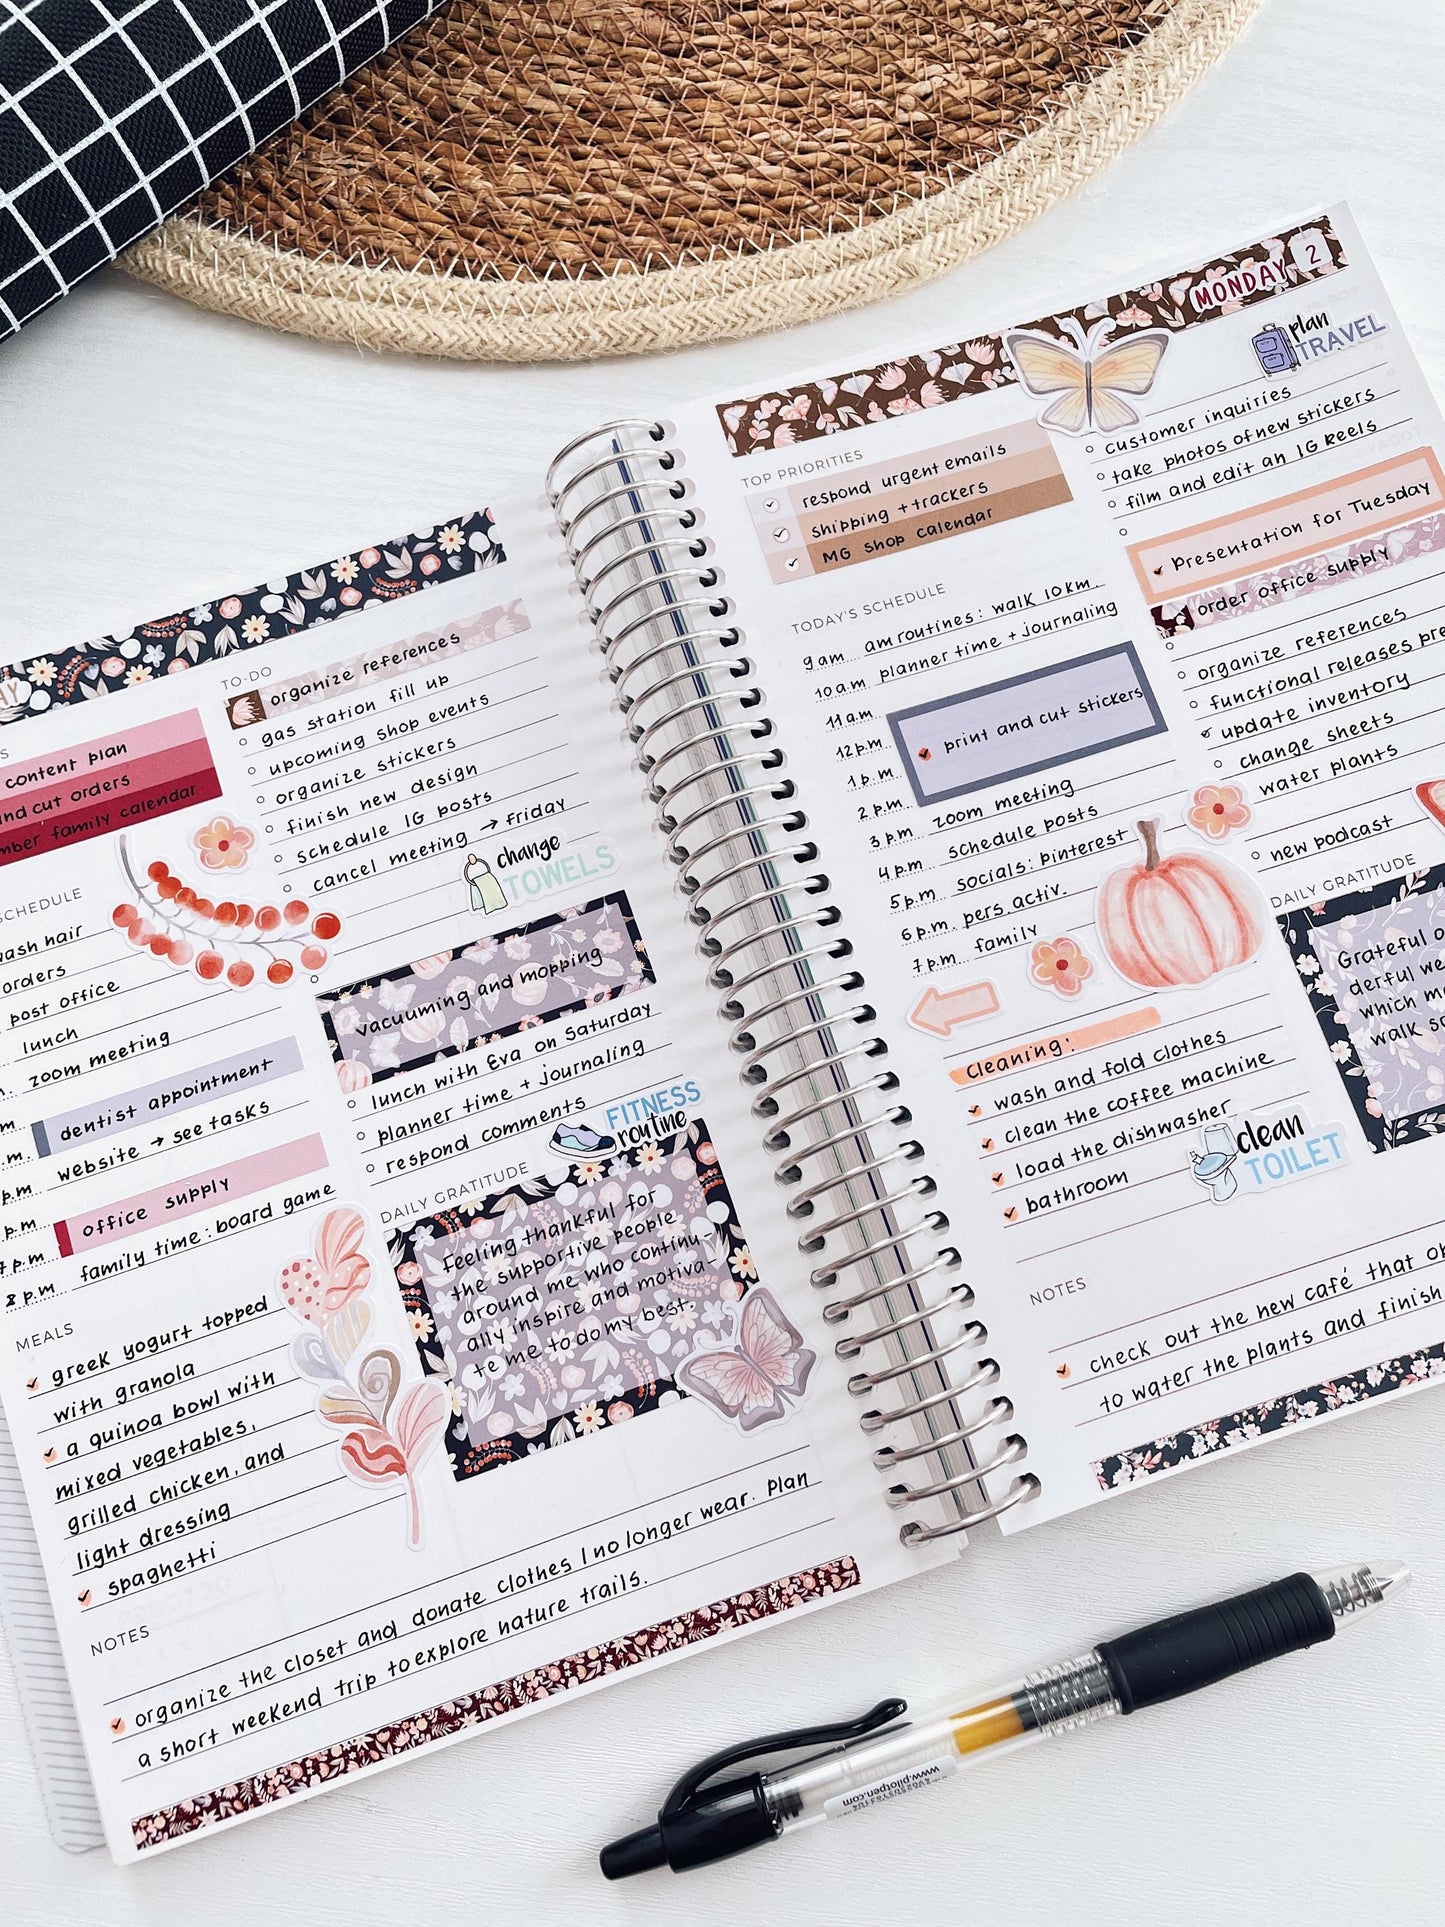 AY
content plan
nd cut orders
mber family calendar
SCHEDULE
ash hair
orders
post office
lunch
zoom meeting
dentist appointment
website → see tasks
office supply
family time: board game
8 p.m.
MEALS
greek yogurt topped
with granola
a quinoa bowl with
mixed vegetables,
grilled chicken, and
light dressing
spaghetti
TO-DO
organize references
gas station fill up
upcoming shop events
organize stickers
finish new design
schedule IG posts
cancel meeting → friday
change
TOWELS
vacuuming and mopping
lunch with Eva on Saturday
planner time + journaling
respond comments
FITNESS
routine
DAILY GRATITUDE
Feeling thankful for
the supportive people
around me who continu-
ally inspire and motiva-
te me to do my best.
NOTES
organize the closet and donate clothes I no longer wear. Plan
a short weekend trip to explore nature trails.
MONDAY 2
TOP PRIORITIES
respond urgent emails
shipping + trackers
MG shop calendar
TODAY'S SCHEDULE
9 am am routines: walk 10km.
10 a.m planner time + journaling
11 a.m
12 p.m print and cut stickers
1 p.m
2 p.m
3 p.m zoom meeting
4 p.m schedule posts
5 p.m socials: pinterest
6 p.m. pers. activ.
7 p.m family
cleaning:
wash and fold clothes
clean the coffee machine
load the dishwasher
bathroom
clean
TOILET
plan
TRAVEL
customer inquiries
take photos of new stickers
film and edit an IG Reels
Presentation for Tuesday
order office supply
organize references
functional releases pre
update inventory
change sheets
water plants
new podcast
DAILY GRATITUDE
Grateful o
derful we
which m
walk
NOTES
check out the new café that o
to water the plants and finish
www.pilotpen.com